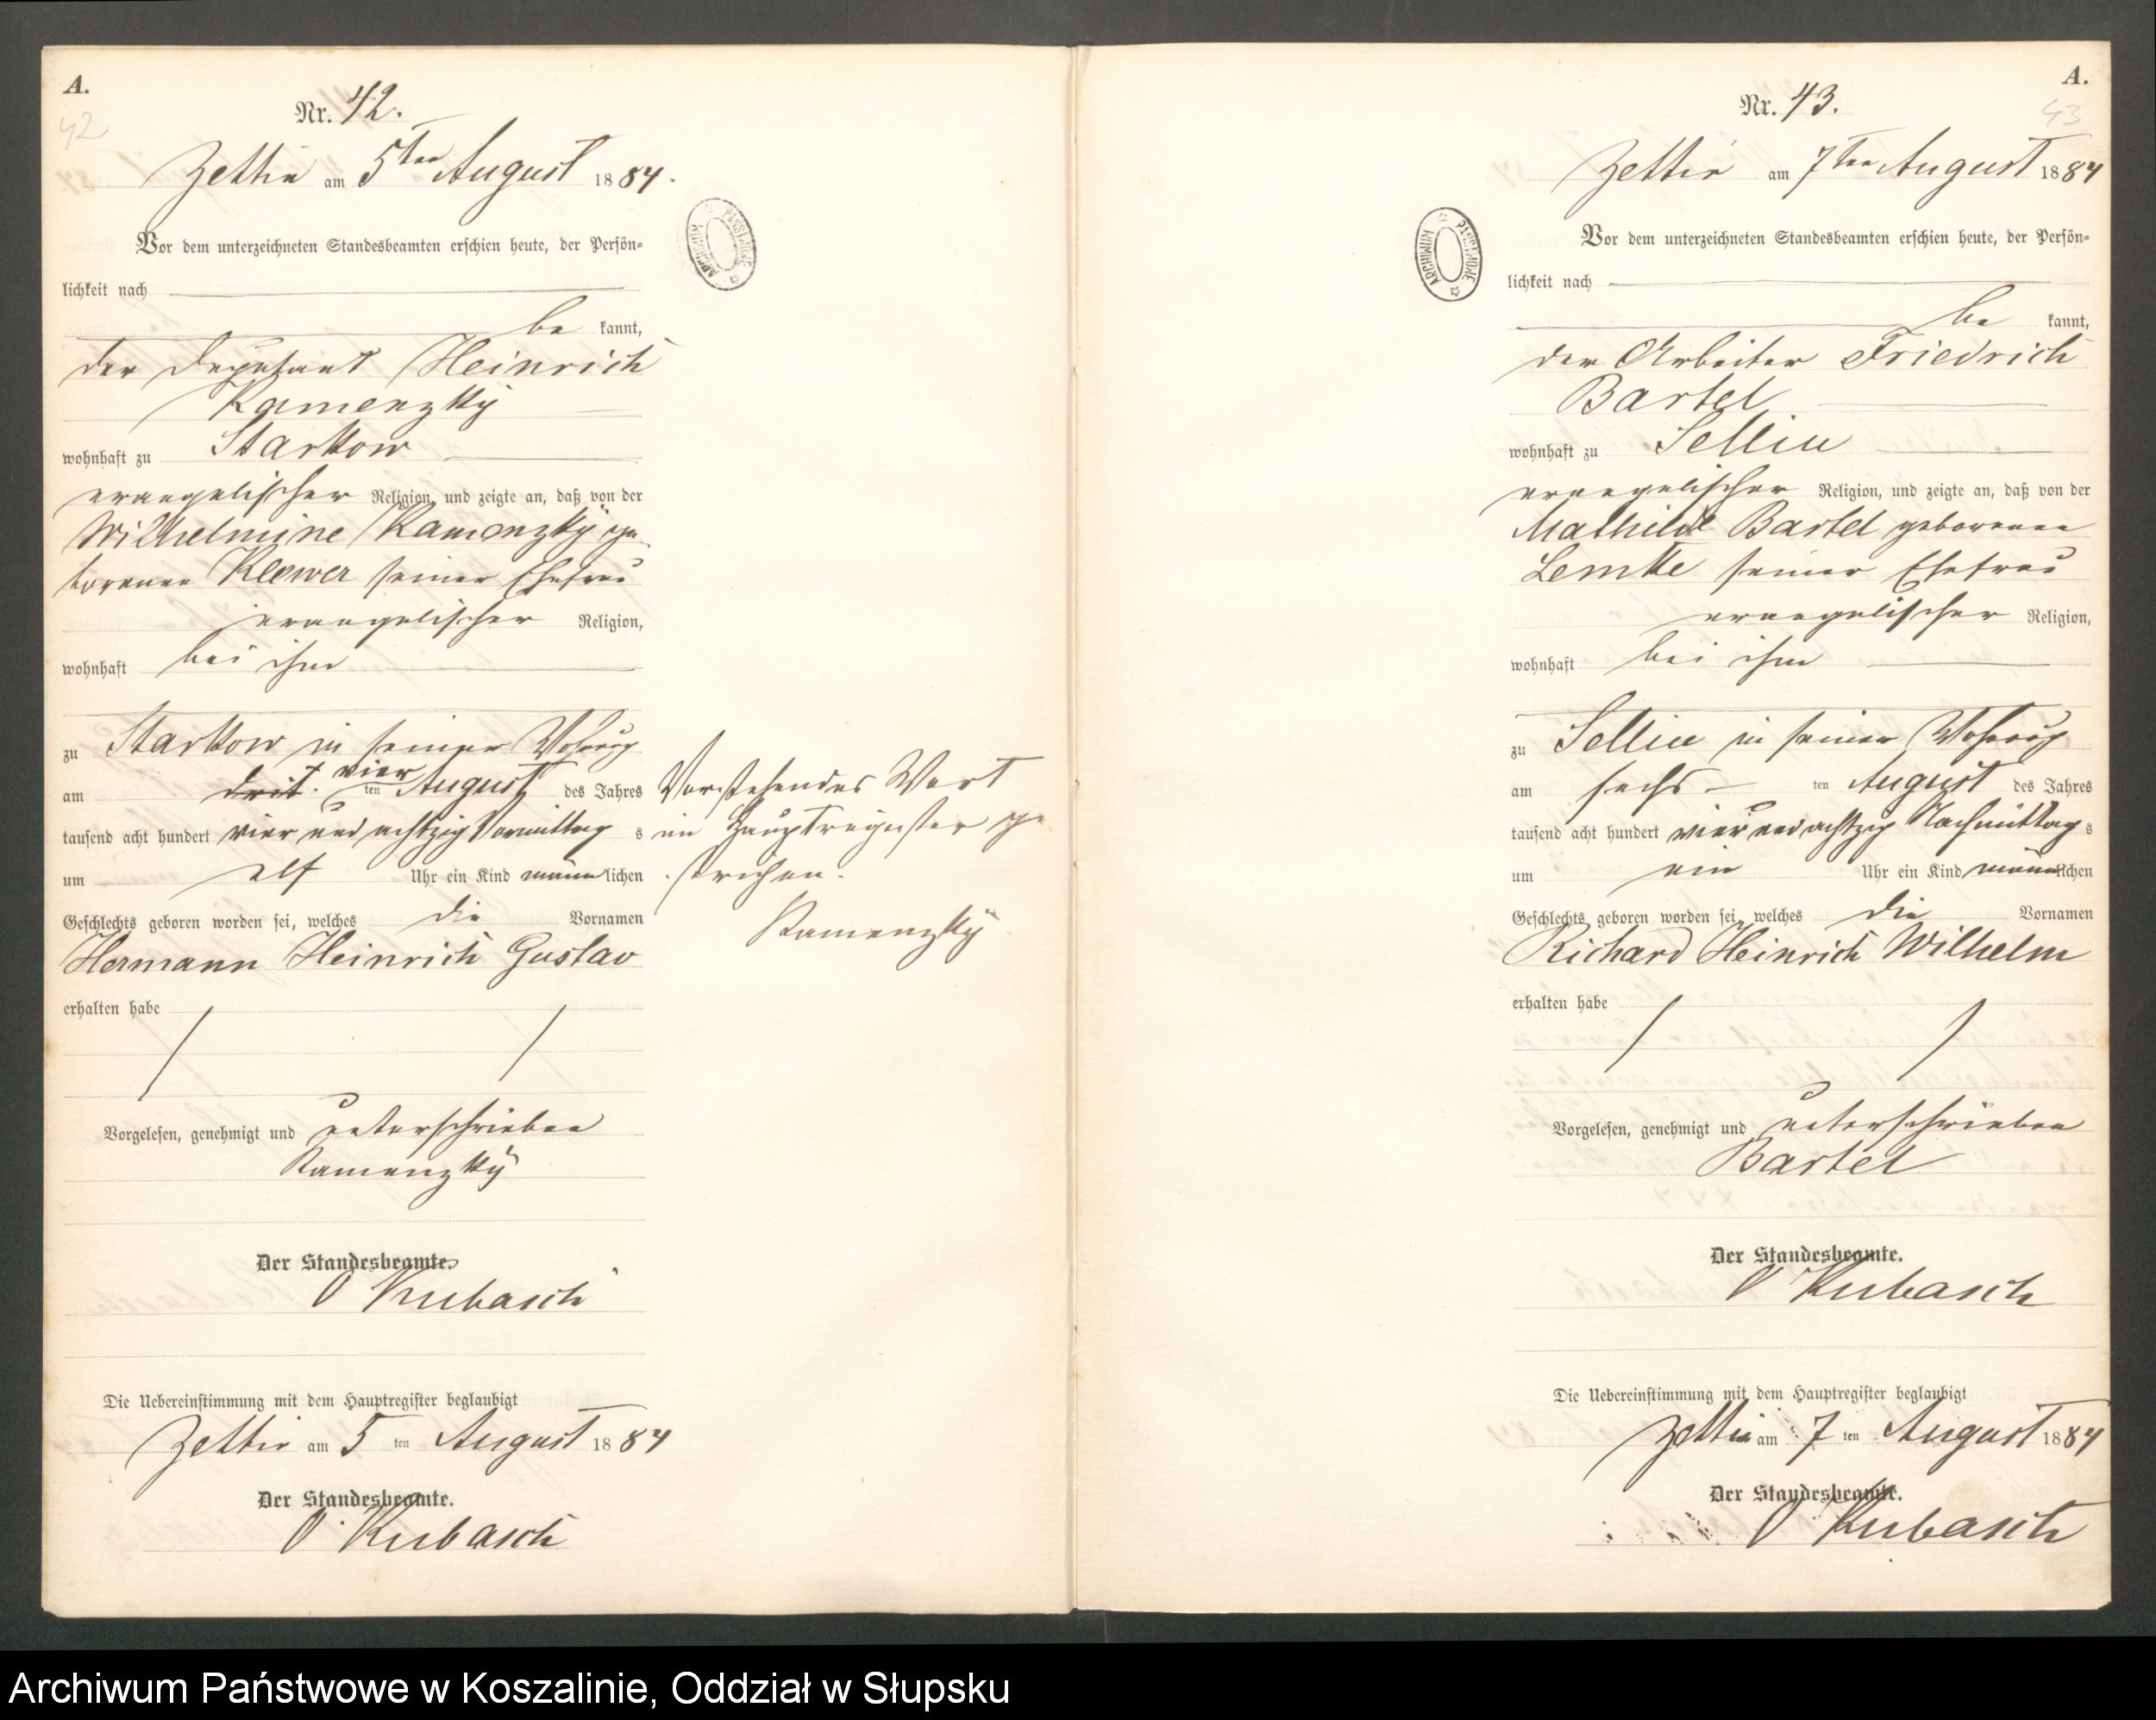 A.
42
Nr. 42.
Zettin am 5ten August 1884.
Vor dem unterzeichneten Standesbeamten erschien heute, der Persön-
lichkeit nach
be kannt,
der Deputant Heinrich
Kamenzky
wohnhaft zu Starkow
evangelischer Religion, und zeigte an, daß von der
Wilhelmine Kamenzky ge-
borenen Klewer seiner Ehefrau
evangelischer Religion,
wohnhaft bei ihm
zu Starkow in seiner Wohnung
vier
am drit. ten August des Jahres
tausend acht hundert vier und achtzig Vormittag s
um elf Uhr ein Kind männlichen
Geschlechts geboren worden sei, welches die Vornamen
Hermann Heinrich Gustav
erhalten habe
Vorgelesen, genehmigt und unterschrieben
Kamenzky
Der Standesbeamte.
Kubasch
Die Uebereinstimmung mit dem Hauptregister beglaubigt
Zettin am 5 ten August 1884
Der Standesbeamte.
Kubasch
ARCHIWUM PAŃSTWOWE
Vorstehendes Wort
im Hauptregister ge-
strichen.
Kamenzky
A.
43
Nr. 43.
Zettin am 7ten August 1884
ARCHIWUM PAŃSTWOWE
Vor dem unterzeichneten Standesbeamten erschien heute, der Persön-
lichkeit nach
be kannt,
der Arbeiter Friedrich
Bartel
wohnhaft zu Sellin
evangelischer Religion, und zeigte an, daß von der
Mathilde Bartel geborenen
Lemke seiner Ehefrau
evangelischer Religion,
wohnhaft bei ihm
zu Sellin in seiner Wohnung
am sechs ten August des Jahres
tausend acht hundert vier und achtzig Nachmittag s
um ein Uhr ein Kind männlichen
Geschlechts geboren worden sei, welches die Vornamen
Richard Heinrich Wilhelm
erhalten habe
Vorgelesen, genehmigt und unterschrieben
Bartel
Der Standesbeamte.
Kubasch
Die Uebereinstimmung mit dem Hauptregister beglaubigt
Zettin am 7 ten August 1884
Der Standesbeamte.
Kubasch
Archiwum Państwowe w Koszalinie, Oddział w Słupsku